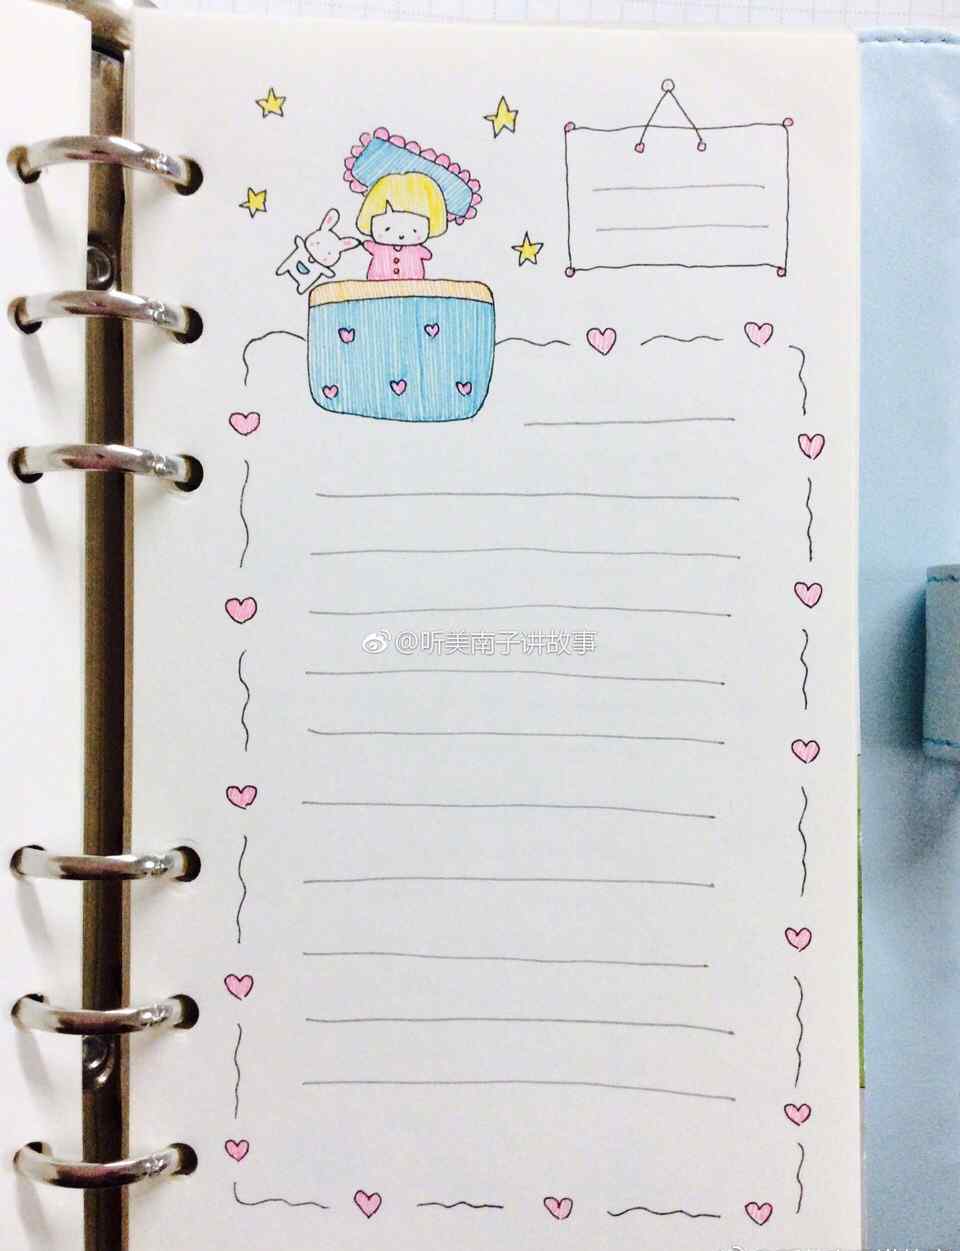 @听美南子讲故事